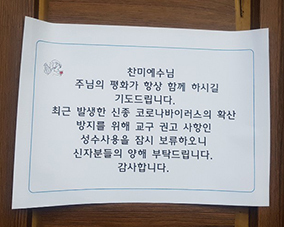 찬미예수님
주님의 평화가 항상 함께 하시길
기도드립니다.
최근 발생한 신종 코로나바이러스의 확산
방지를 위해 교구 권고 사항인
성수사용을 잠시 보류하오니
신자분들의 양해 부탁드립니다.
감사합니다.